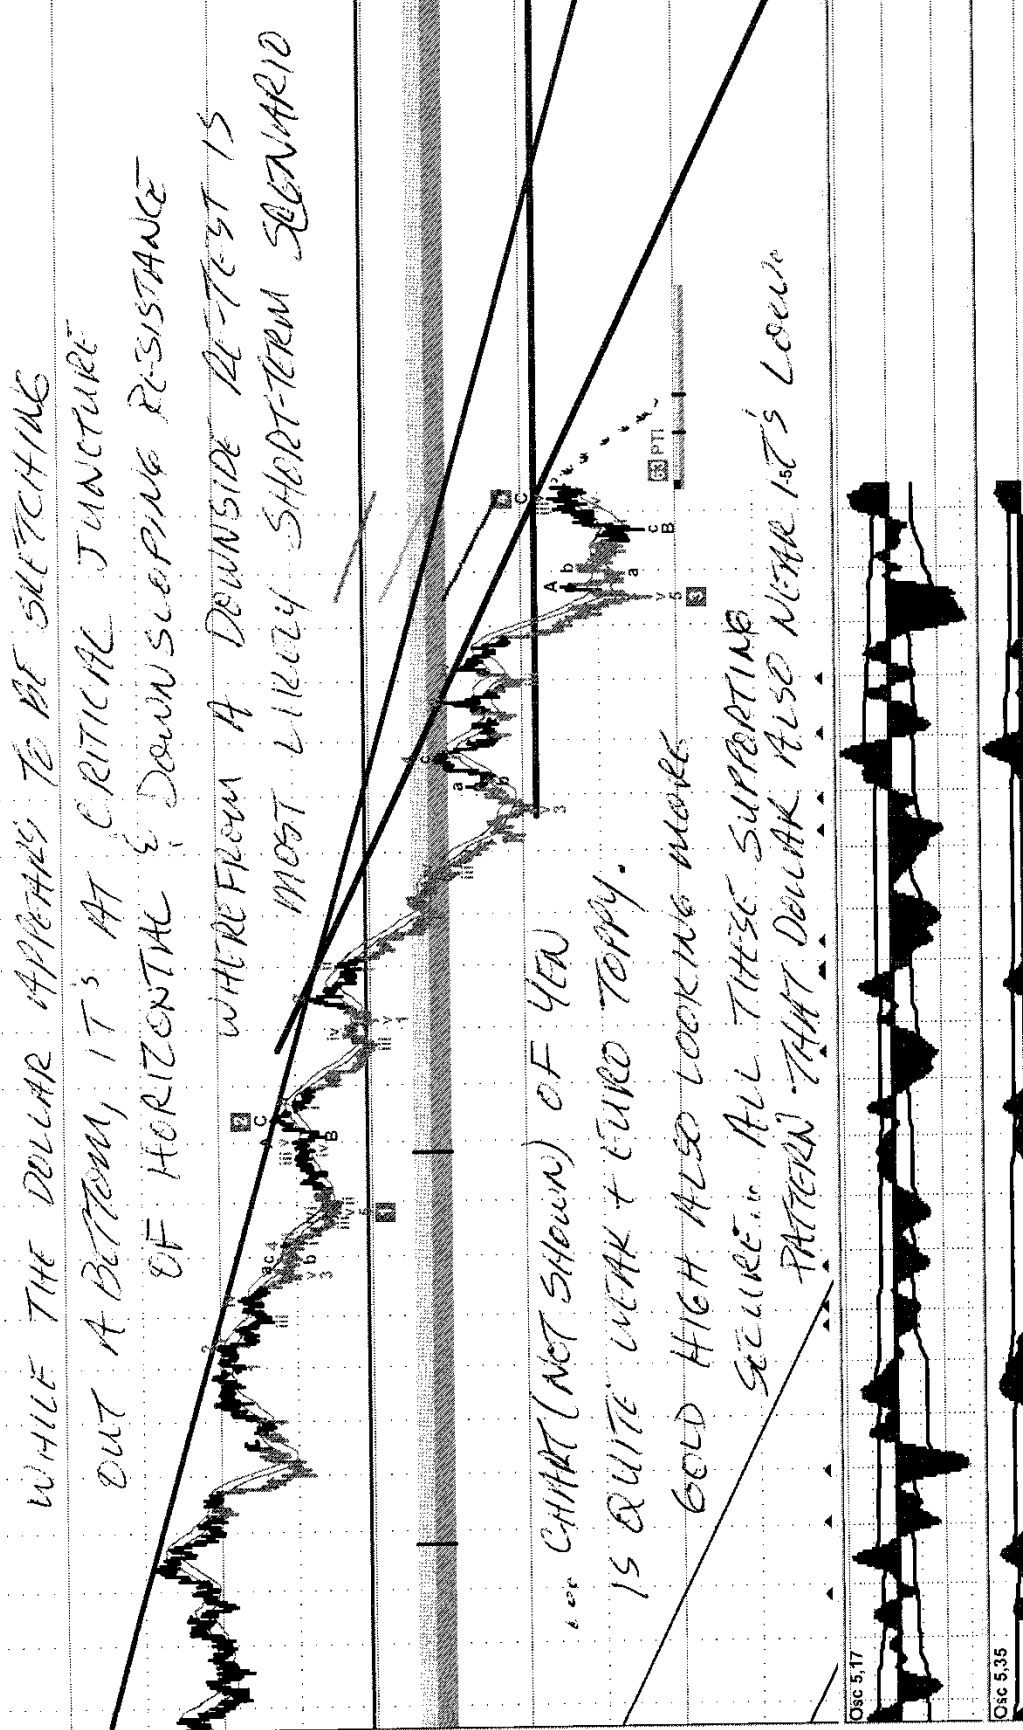 WHILE THE DOLLAR APPEARS TO BE SKETCHING
OUT A BOTTOM, IT'S AT CRITICAL JUNCTURE
OF HORIZONTAL & DOWNSLOPING RESISTANCE
WHEREFROM A DOWNSIDE RE-TEST IS
MOST LIKELY SHORT-TERM SCENARIO
... CHART (NOT SHOWN) OF YEN
IS QUITE WEAK + EURO TOPPY.
GOLD HIGH ALSO LOOKING MORE
SECURE... ALL THESE SUPPORTING
PATTERN THAT DOLLAR ALSO NEAR
2
C
A
B
iv
iii
V
1
1
a
c
4
v
b
3
a
c
b
3
A
b
a
c
B
C
v
5
3
PTI
Osc 5,17
Osc 5,35